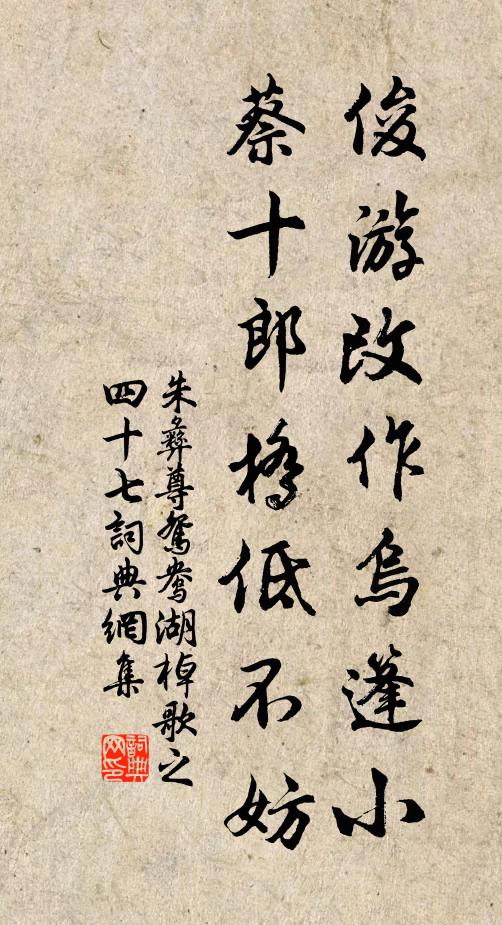 俊游改作烏蓬小
蔡十郎橋低不妨
朱彝尊鴛鴦湖棹歌之
四十七詞典網集
詞典
网印